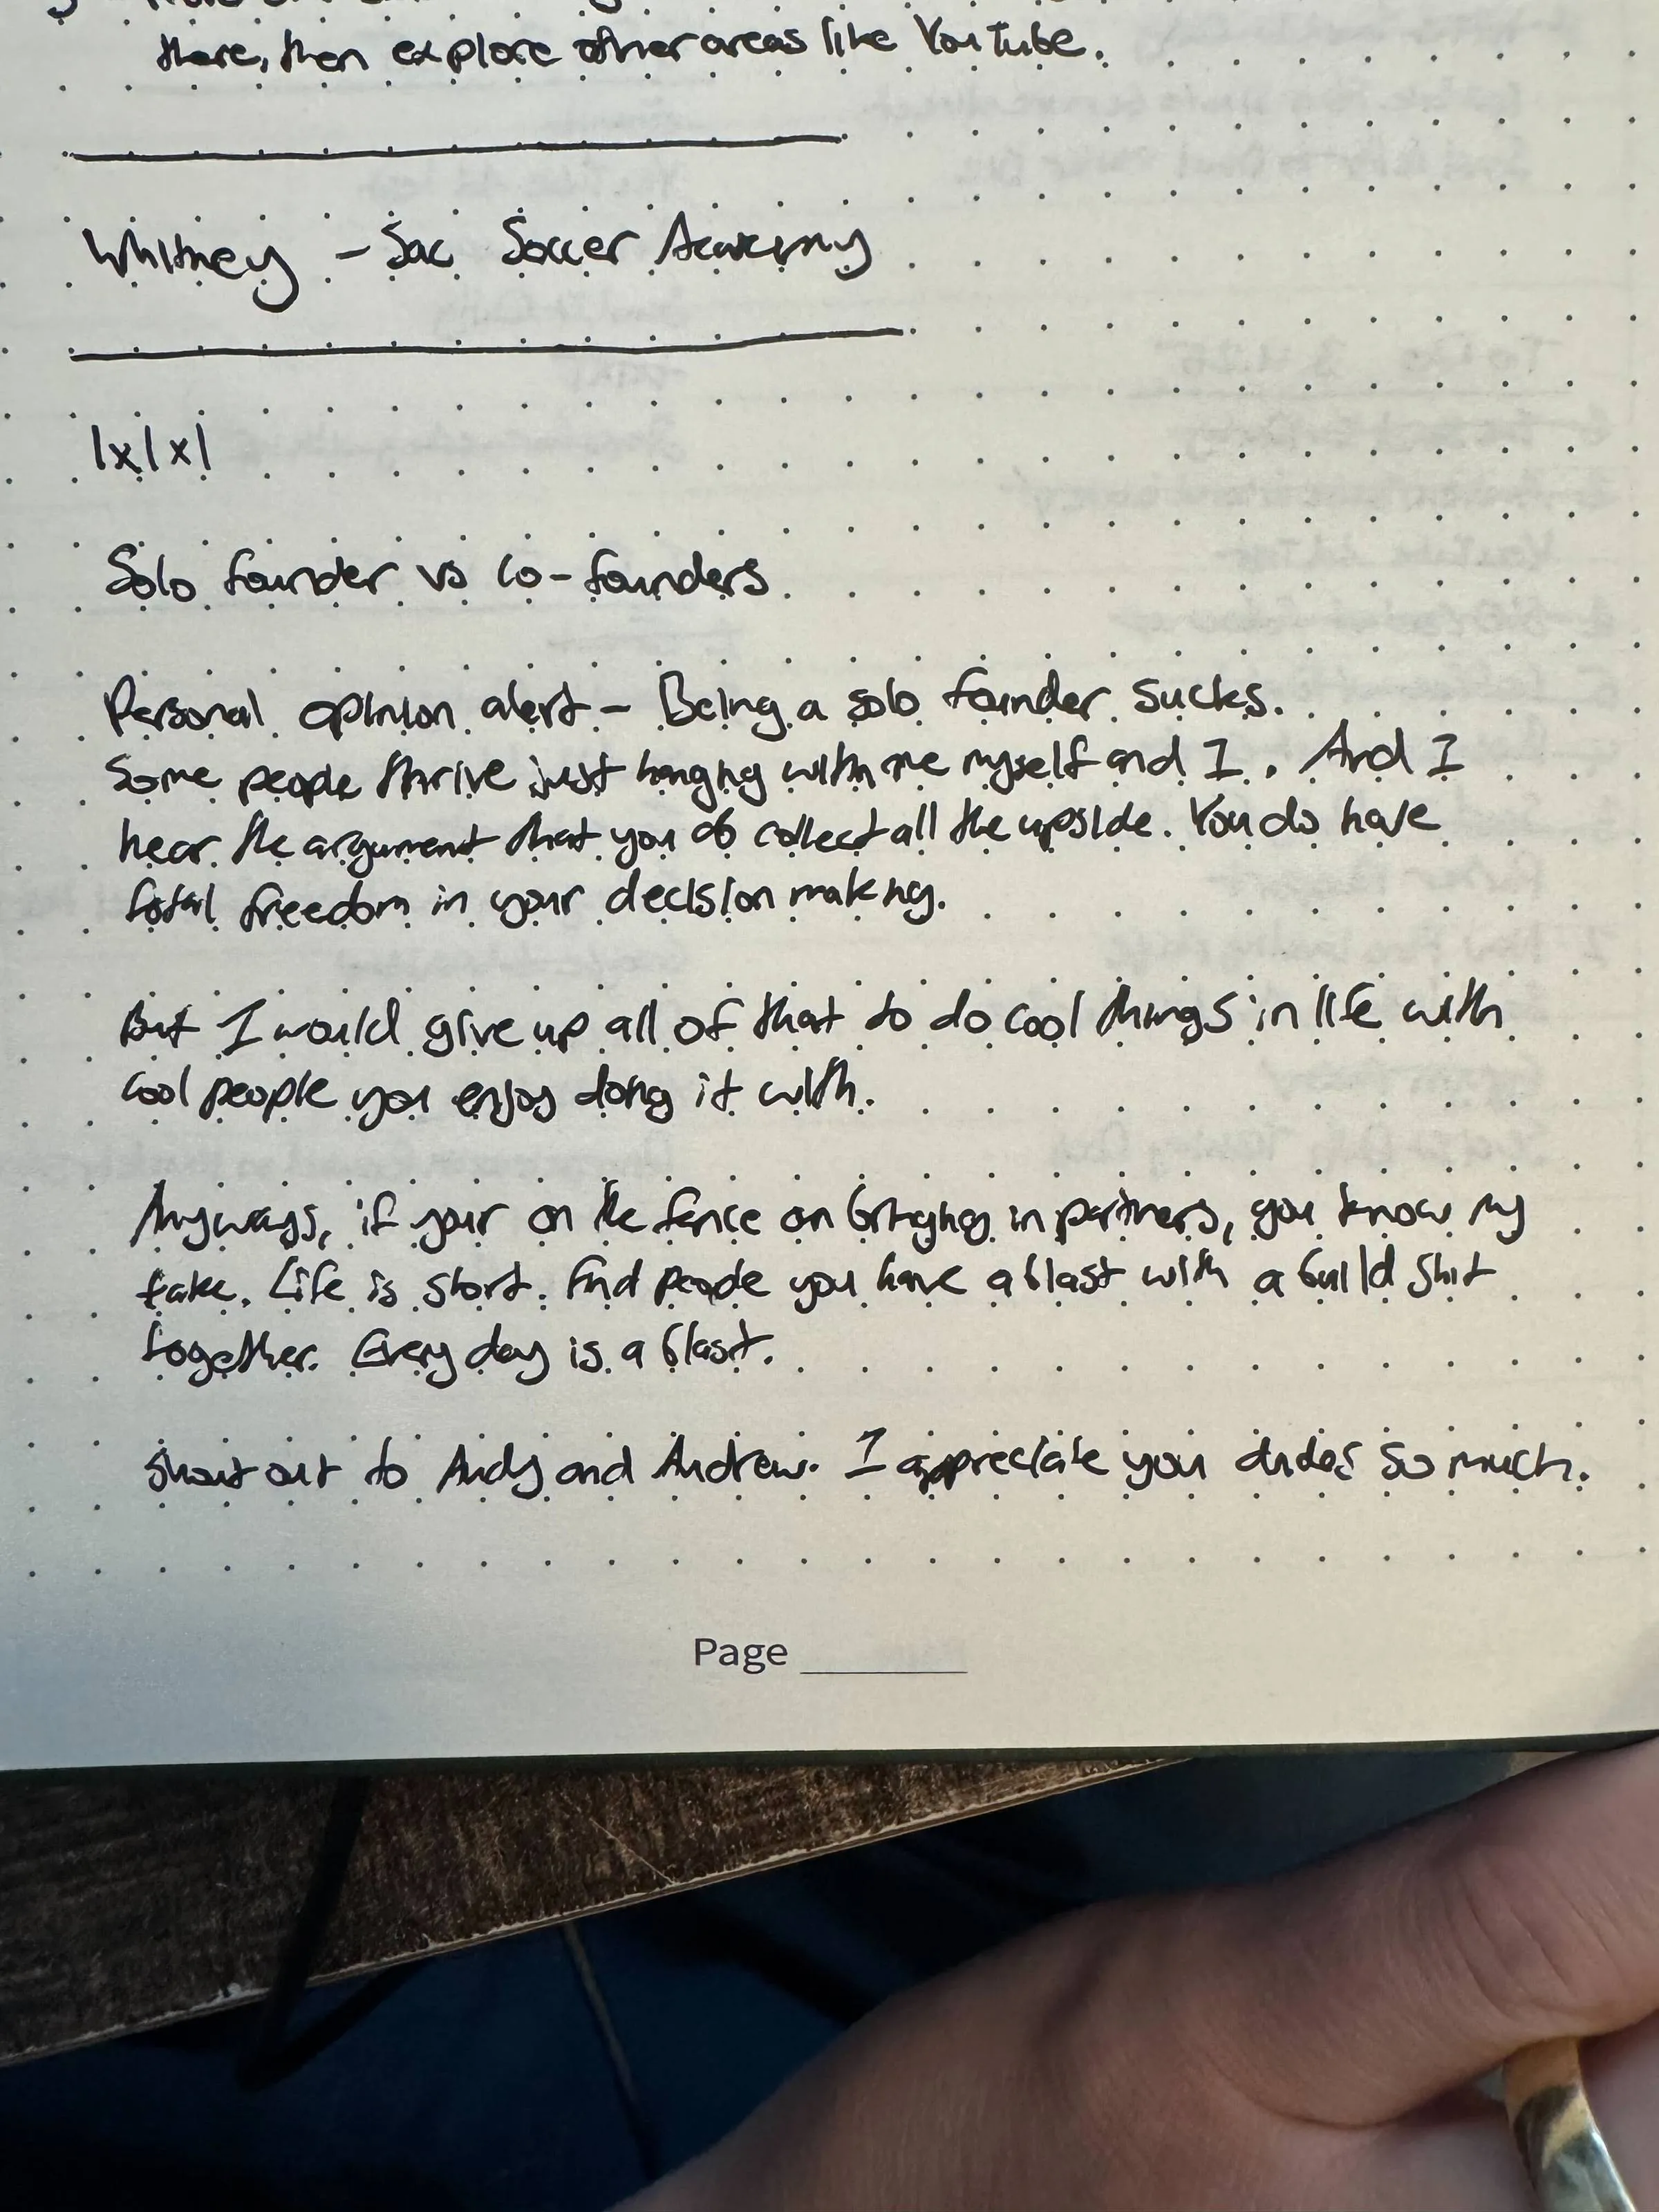 there, then explore other areas like YouTube.
Whitney - Sac Soccer Academy
|x|x|
Solo founder vs co-founders
Personal opinion alert - Being a solo founder sucks.
Some people thrive just hanging with me myself and I. And I
hear the argument that you do collect all the upside. You do have
total freedom in your decision making.
But I would give up all of that to do cool things in life with
cool people you enjoy doing it with.
Anyways, if your on the fence on bringing in partners, you know my
take. Life is short. Find people you have a blast with a build shit
together. Every day is a blast.
Shout out to Andy and Andrew. I appreciate you dudes so much.
Page